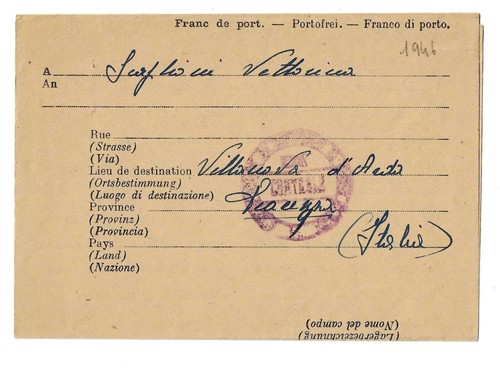 Franc de port. — Portofrei. — Franco di porto.
1946
A
An
Vittorina
Rue
(Strasse)
(Via)
Lieu de destination Villanova d'Arda
(Ortsbestimmung)
(Luogo di destinazione)
Province Piacenza
(Provinz)
(Provincia)
Pays (Italia)
(Land)
(Nazione)
(Nome del campo)
(Lagerbezeichnung)